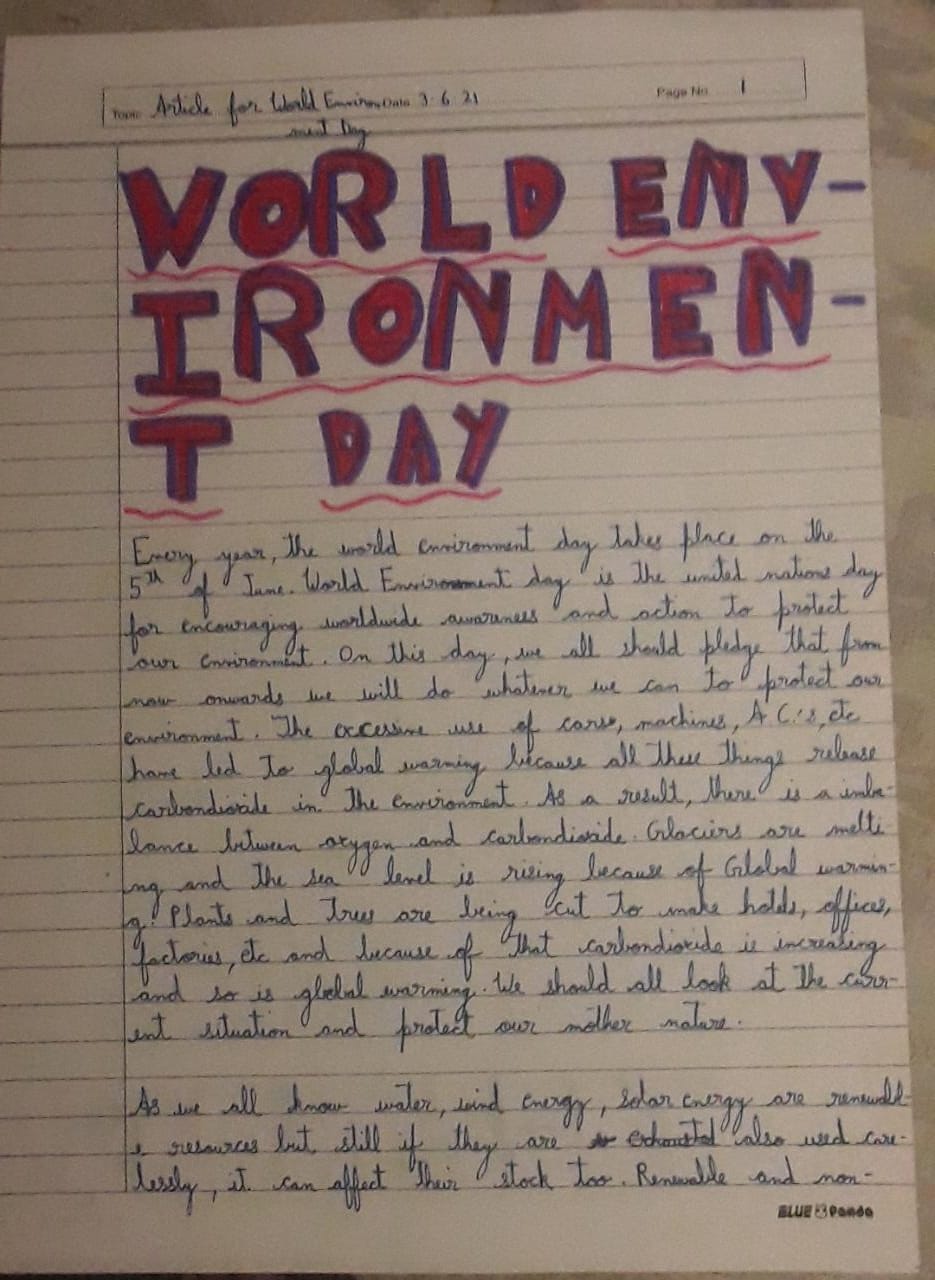 Topic Article for World Environ Date 3-6-21 Page No. 1
ment Day
WORLD ENV-
IRONMEN-
T DAY
Every year, the world environment day takes place on the
5TH of June. World Environment day is the united nations day
for encouraging worldwide awareness and action to protect
our environment. On this day, we all should pledge that from
now onwards we will do whatever we can to protect our
environment. The excessive use of cars, machines, A.C.'s, etc
have led to global warming because all these things release
carbondioxide in the environment. As a result, there is a imba-
lance between oxygen and carbondioxide. Glaciers are melti
ng and the sea level is rising because of Global warmin-
g. Plants and trees are being cut to make holds, offices,
factories, etc and because of that carbondioxide is increasing
and so is global warming. We should all look at the curr-
ent situation and protect our mother nature.
As we all know water, wind energy, solar energy are renewabl-
e resources but still if they are exhausted also used care-
lessly, it can affect their stock too. Renewable and non-
BLUE Panda